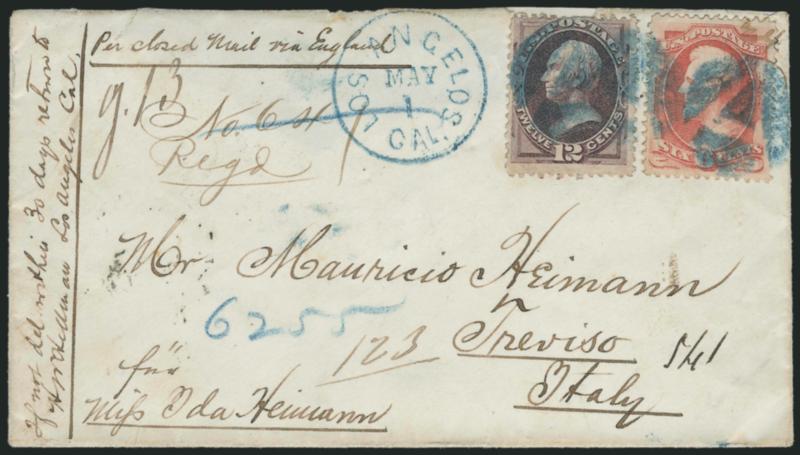 Per closed Mail via England
LOS ANGELOS
MAY
1
CAL.
U.S. POSTAGE
TWELVE 12 CENTS
U.S. POSTAGE
SIX CENTS
No. 6
Regd
Mr Mauricio Heimann
6255
123
Treviso
541
Italy
für
Miſs Ida Heimann
If not del within 30 days return to
Los Angeles Cal.